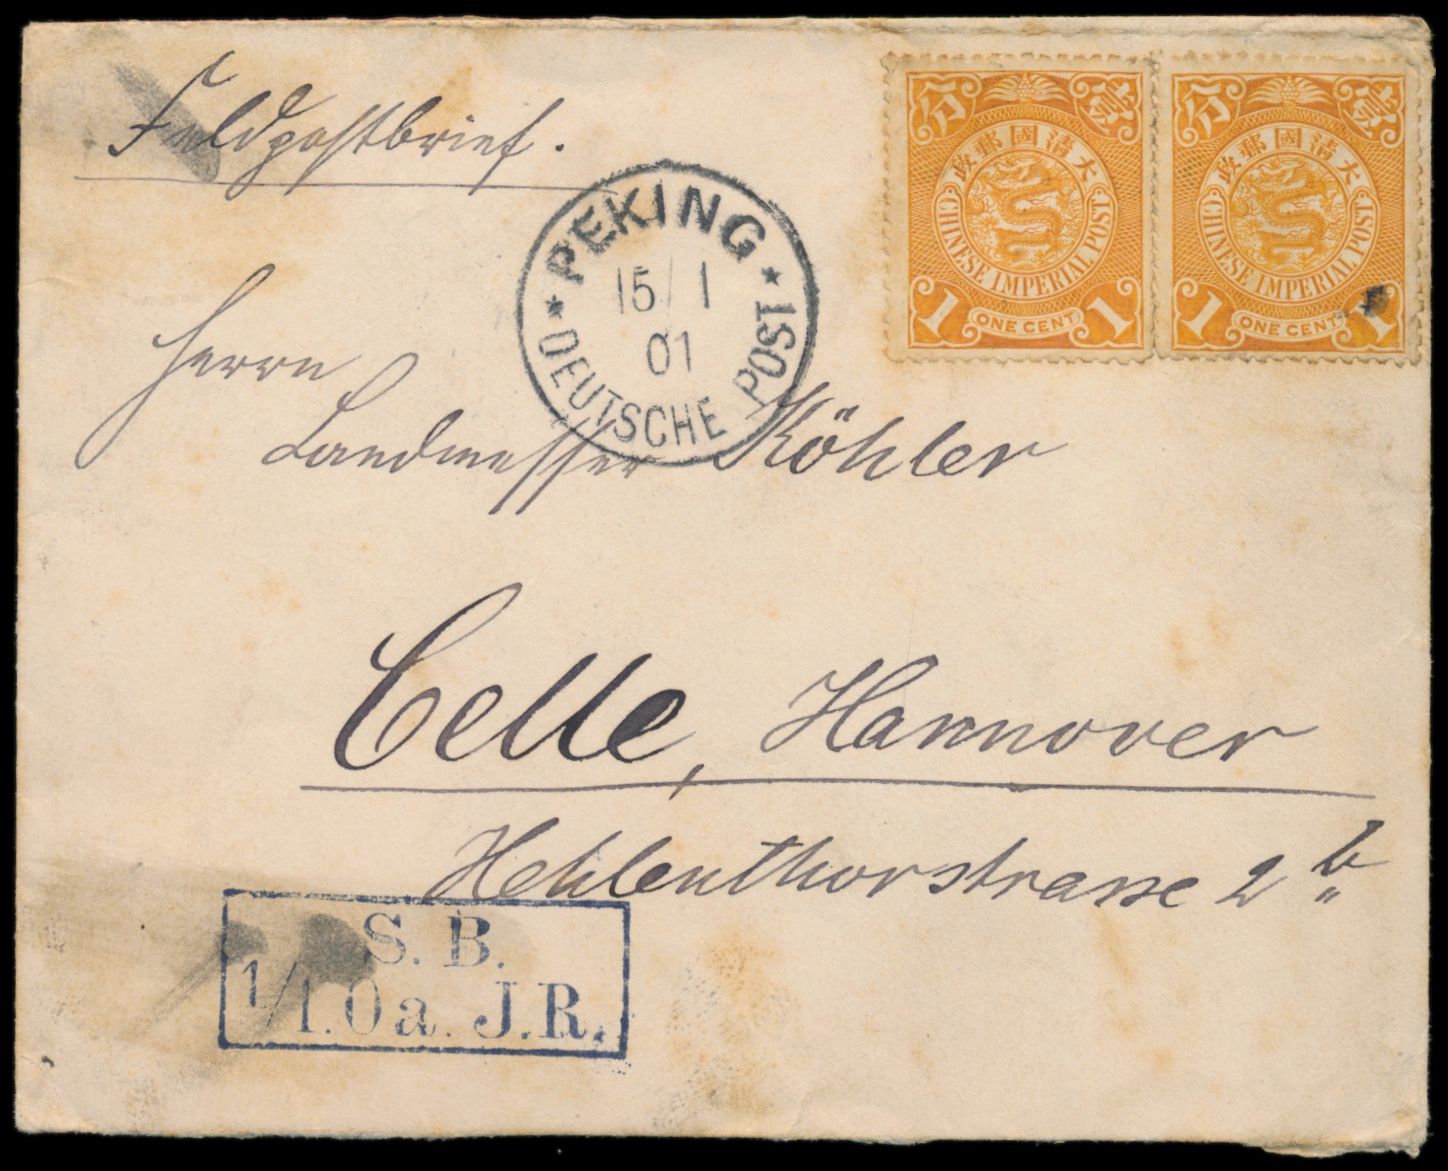 Feldpostbrief.
分 壹
大清國郵政
CHINESE IMPERIAL POST
1 ONE CENT 1
分 壹
大清國郵政
CHINESE IMPERIAL POST
1 ONE CENT 1
PEKING
15/1
01
* DEUTSCHE POST *
Herrn
Landmesser Köhler
Celle, Hannover
Hehlenthorstrasse 2 b
S. B.
1/1.0a. J.R.